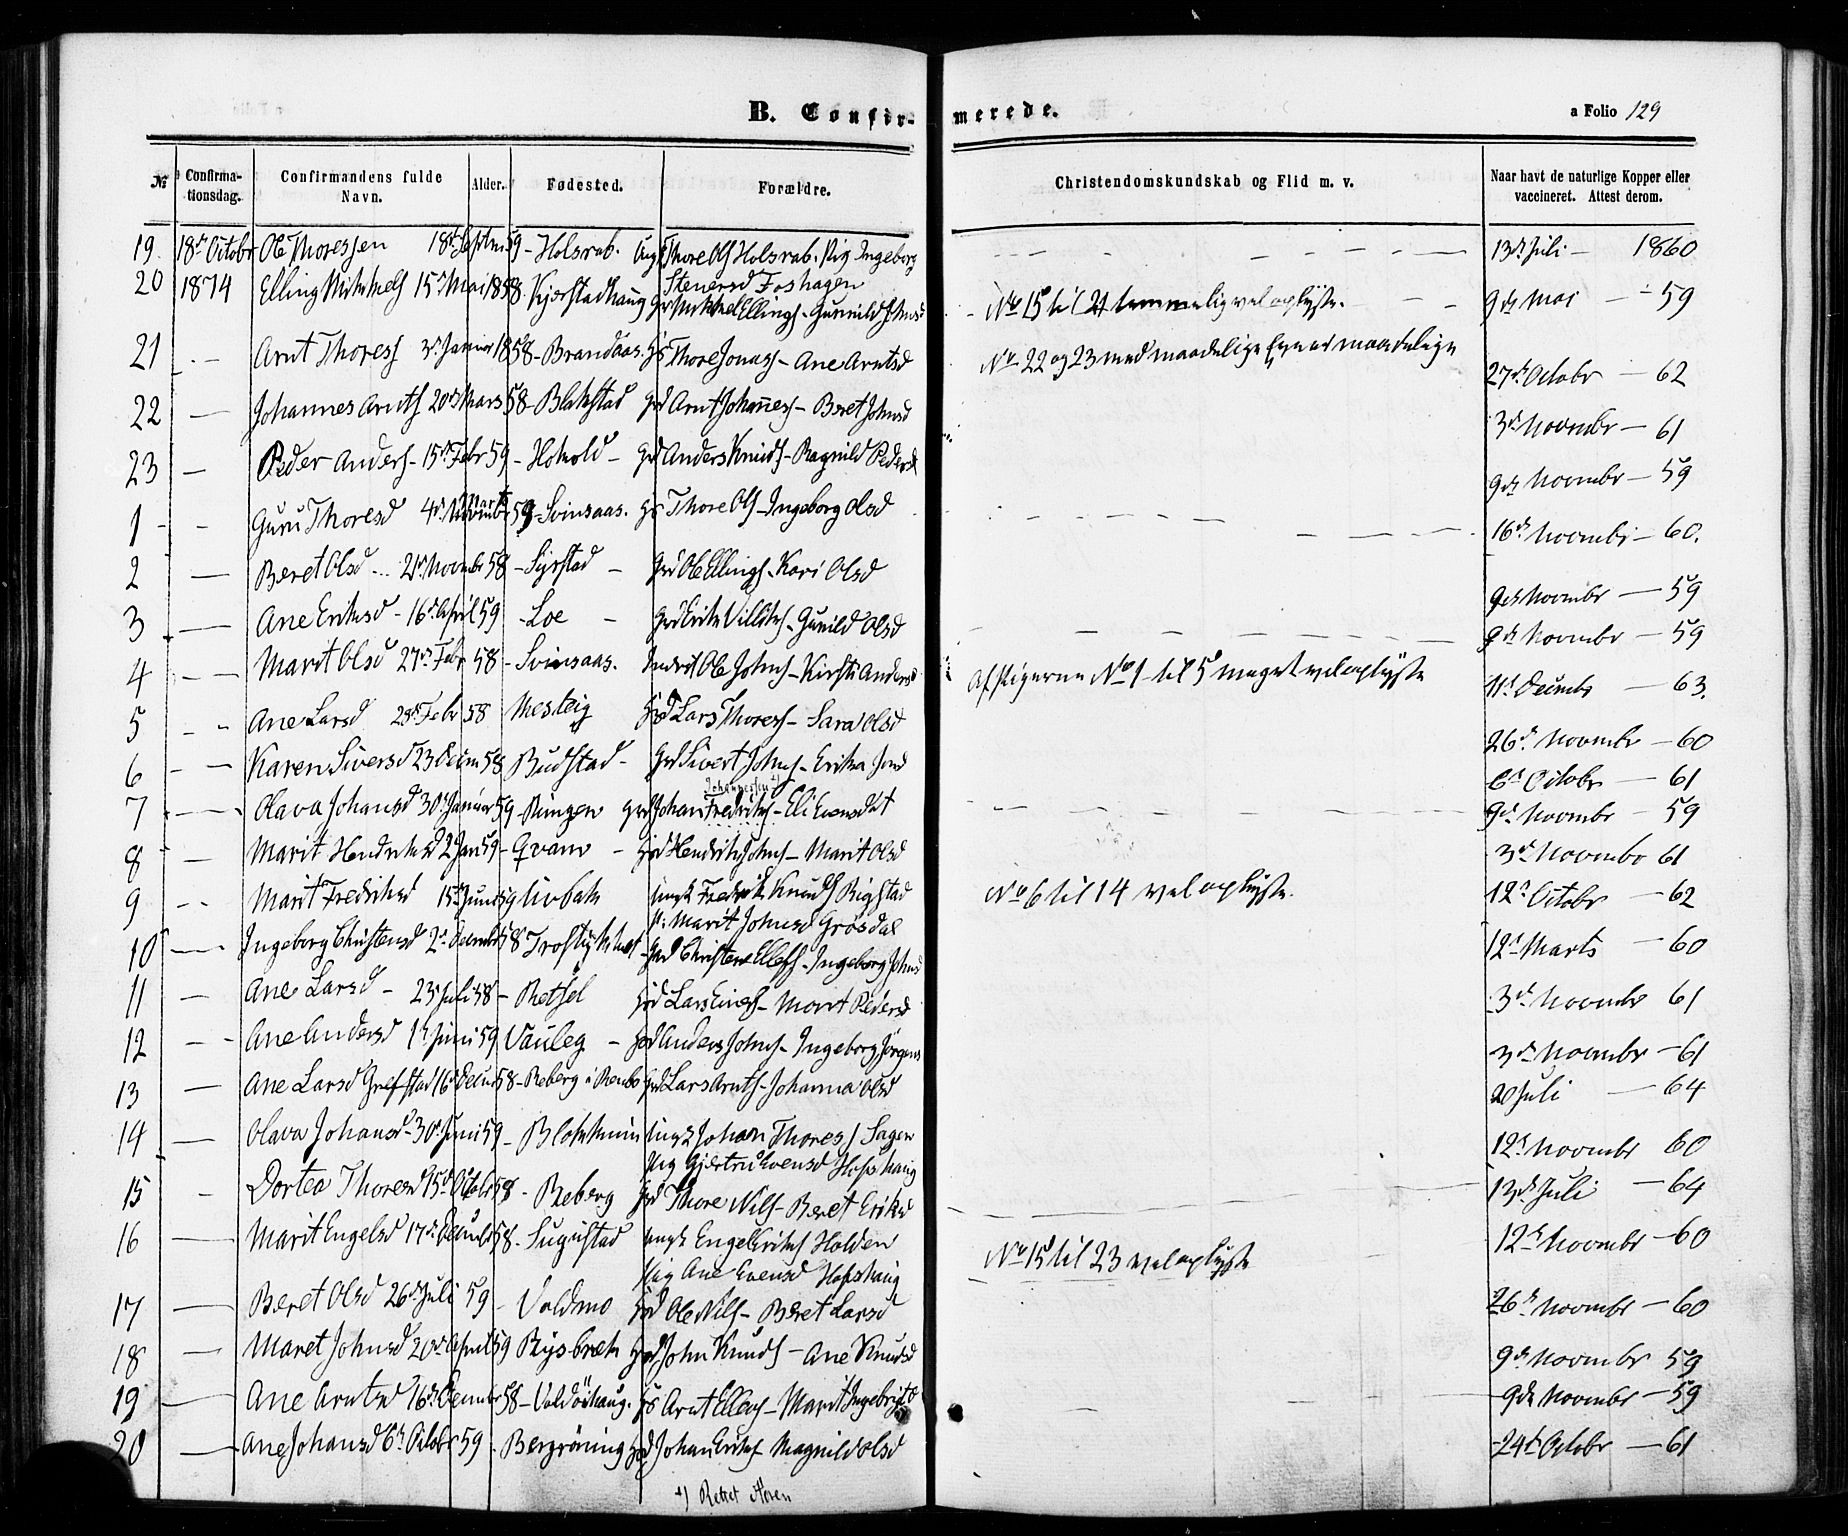 B. Confirmerede.
a Folio 129
№ Confirmationsdag. Confirmandens fulde Navn. Alder. Fødested. Forældre. Christendomskundskab og Flid m. v. Naar havt de naturlige Kopper eller vaccineret. Attest derom.
19 18de Octobr Ole Thoressen 18de Septm 59 - Holsrab. Thore Ols Holsrab. Pig Ingeborg 13de Juli - 1860
Stenersd Foshagen
20 1874 Elling Mikkels 15de Mai 1858 - Kjerstadhaug Mikkel Ellings - Gunild Johnsd No 15 til 21 temmelig vel oplyste. 9de Mai - 59
21 Arnt Thoress 3de Januar 1858 - Brandaas. Hs Thore Jonass - Ane Arntsd No 22 og 23 med maadelige Evner maadelige 27de Octobr - 62
22 Johannes Arnts 20de Mars 58 - Blakstad Grd Arnt Johaness - Beret Johnsd 3de Novmbr - 61
23 Peder Anders - 15de Febr 59 - Hokold - Grd Anders Knuds - Ragnild Pedersd 9de Novmbr - 59
1 Guru Thoresd 4de Marts 59 - Svinsaas. Hs Thore Ols - Ingeborg Olsd 16de Novmbr - 60.
2 Beret Olsd 21de Novmbr 58 - Syrstad - Grd Ole Ellings - Kari Olsd 9de Novmbr - 59
3 Ane Eriksd - 16de April 59 - Loe - Grd Erik Villiks - Gunild Olsd 9de Novmbr - 59
4 Marit Olsd 27de Febr 58 - Svinsaas. Inderst Ole Johns - Kirsti Andersd Af Pigerne No 1 til 5 meget vel oplyste 11te Decmbr - 63.
5 Ane Larsd 28de Febr 58 Mesteig Hsd Lars Thoress - Sara Olsd 26de Novmbr - 60
6 Karen Siversd 23 Decm 58 Budstad - Grd Sivert Johns - Erika Jonsd 6te Octobr - 61
Johannessen +)
7 Olava Johansd 30de Januar 59 - Ringen Grd Johan Fredriks - Eli Evensdat 9de Novmbr - 59
8 Marit Hendriksd 2 Jan 59 - Qvam - Hsd Hendrik Johns - Marit Olsd 3de Novmbr 61
9 Marit Fredriksd 15de Juni 59 Livbak ungk Fredrik Knuds Rigstad No 6 til 14 vel oplyste. 12te Octobr - 62
P. Marit Johnsd Grøsdal
10 Ingeborg Christensd 2de Decmbr 58 Grd Christen Ellefs - Ingeborg Johnsd 12te Marts - 60
11 Ane Larsd - 23 Juli 58 - Retsel Hsd Lars Einers - Marit Pedersd 3de Novmbr 61
12 Ane Andersd 1ste Juni 59 Vauleg - Hsd Anders Johns - Ingeborg Jørgens 3de Novmbr - 61
13 Ane Larsd Grefstad 16de Decm 58 - Reberg i Renbo Grd Lars Arnts - Johanna Olsd 20 Juli - 64
14 Olava Johansd - 30de Juni 59 - Blokkmin ungk Johan Thores / Sagen 12te Novmbr 60
Pig Gjertru Evensd Hofshaug
15 Dortea Thoresd 15de Octobr 58 - Reberg Grd Thore Nils - Beret Eriksd 13de Juli - 64
16 Marit Engelsd 17de Decmbr 58 - Sugustad ungk Engel Eriks Holden No 15 til 23 vel oplyste 12te Novmbr - 60
Pig Ane Evensd Hofshaug
17 Beret Olsd 26de Juli 59 - Voldmo Hsd Ole Nils - Beret Larsd 26de Novmbr - 60
18 Maret Johnsd 20de April 59 Rysbrek Hsd John Knuds - Ane Knudsd 9de Novmbr 59
19 Ane Arntsd 16de Decmbr 58 - Voldøihaug. Hs Arnt Ellevs - Marit Ingebrigtsd 9de Novmbr - 59
20 Ane Johansd 6te Octobr 59 - Bergrøning Hsd Johan Eriks - Magnild Olsd 24de Octobr - 61
+) Rettet Høren